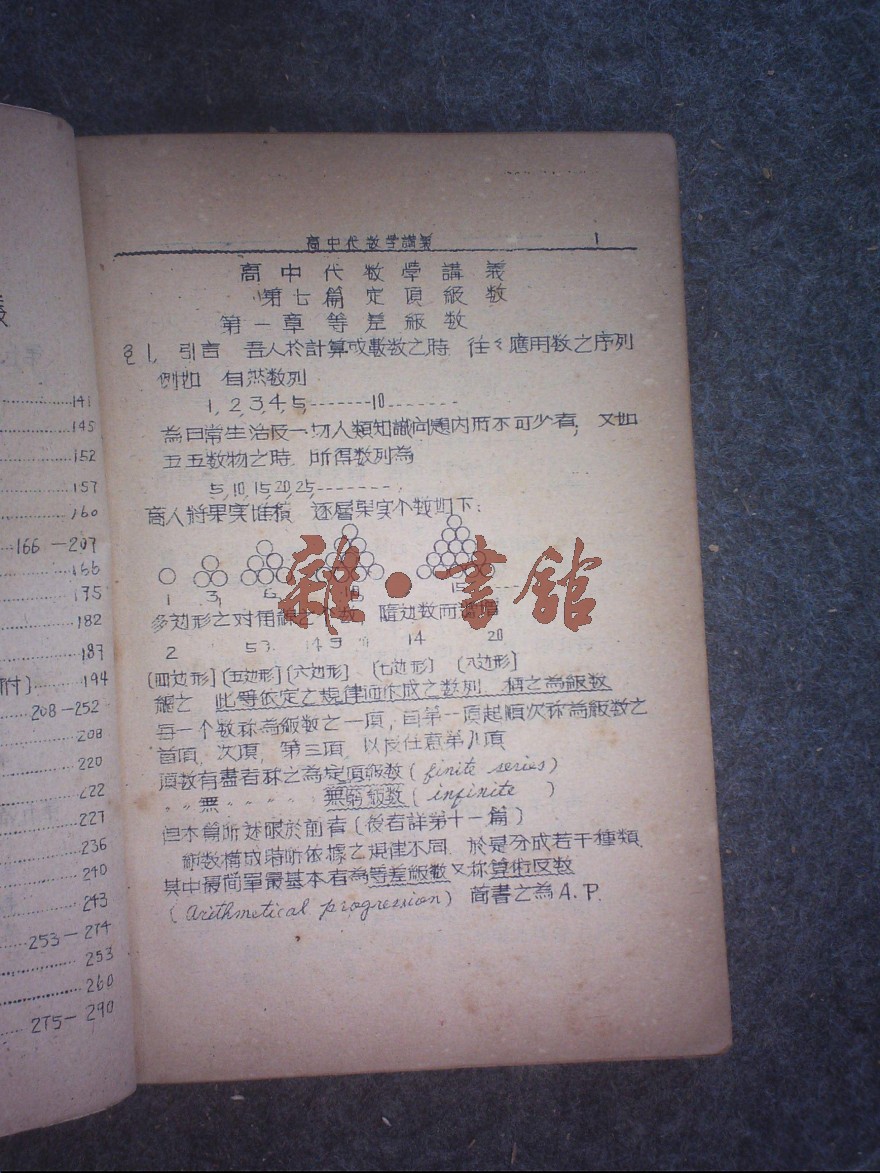 141
145
152
157
160
166-207
166
175
182
187
附]......194
208-252
208
220
222
227
236
240
243
253-274
253
260
275-290
高中代数学講義 1
高中代数學講義
第七篇定項級数
第一章等差級数
§1. 引言 吾人於計算或數数之時 往々應用数之序列
例如 自然数列
1, 2, 3, 4, 5,-------10-------
為日常生活及一切人類知識问題内所不可少者, 又如
五五数物之時 所得数列為
5, 10, 15, 20, 25,-------,
商人將果実堆積 逐層果实个数如下:
1 3 6 10 15----
多边形之对角線之 隨边数而
2 5 9 14 20
[四边形] [五边形] [六边形] [七边形] [八边形]
總之 此等依定之規律而作成之数列 稱之為級数
每一个数称為級数之一項, 自第一項起順次称為級数之
首項, 次項, 第三項, 以及任意第几項
項数有盡者称之為定項級数 (finite series)
〃 〃 無 〃 〃 〃 〃 〃 無窮級数 (infinite )
但本篇所述限於前者 (後者詳第十一篇)
級数構成時所依據之規律不同. 於是分成若干種類.
其中最简單最基本者為等差級数又称算術反数
(arithmetical progression) 简書之為 A.P.
雜·書館